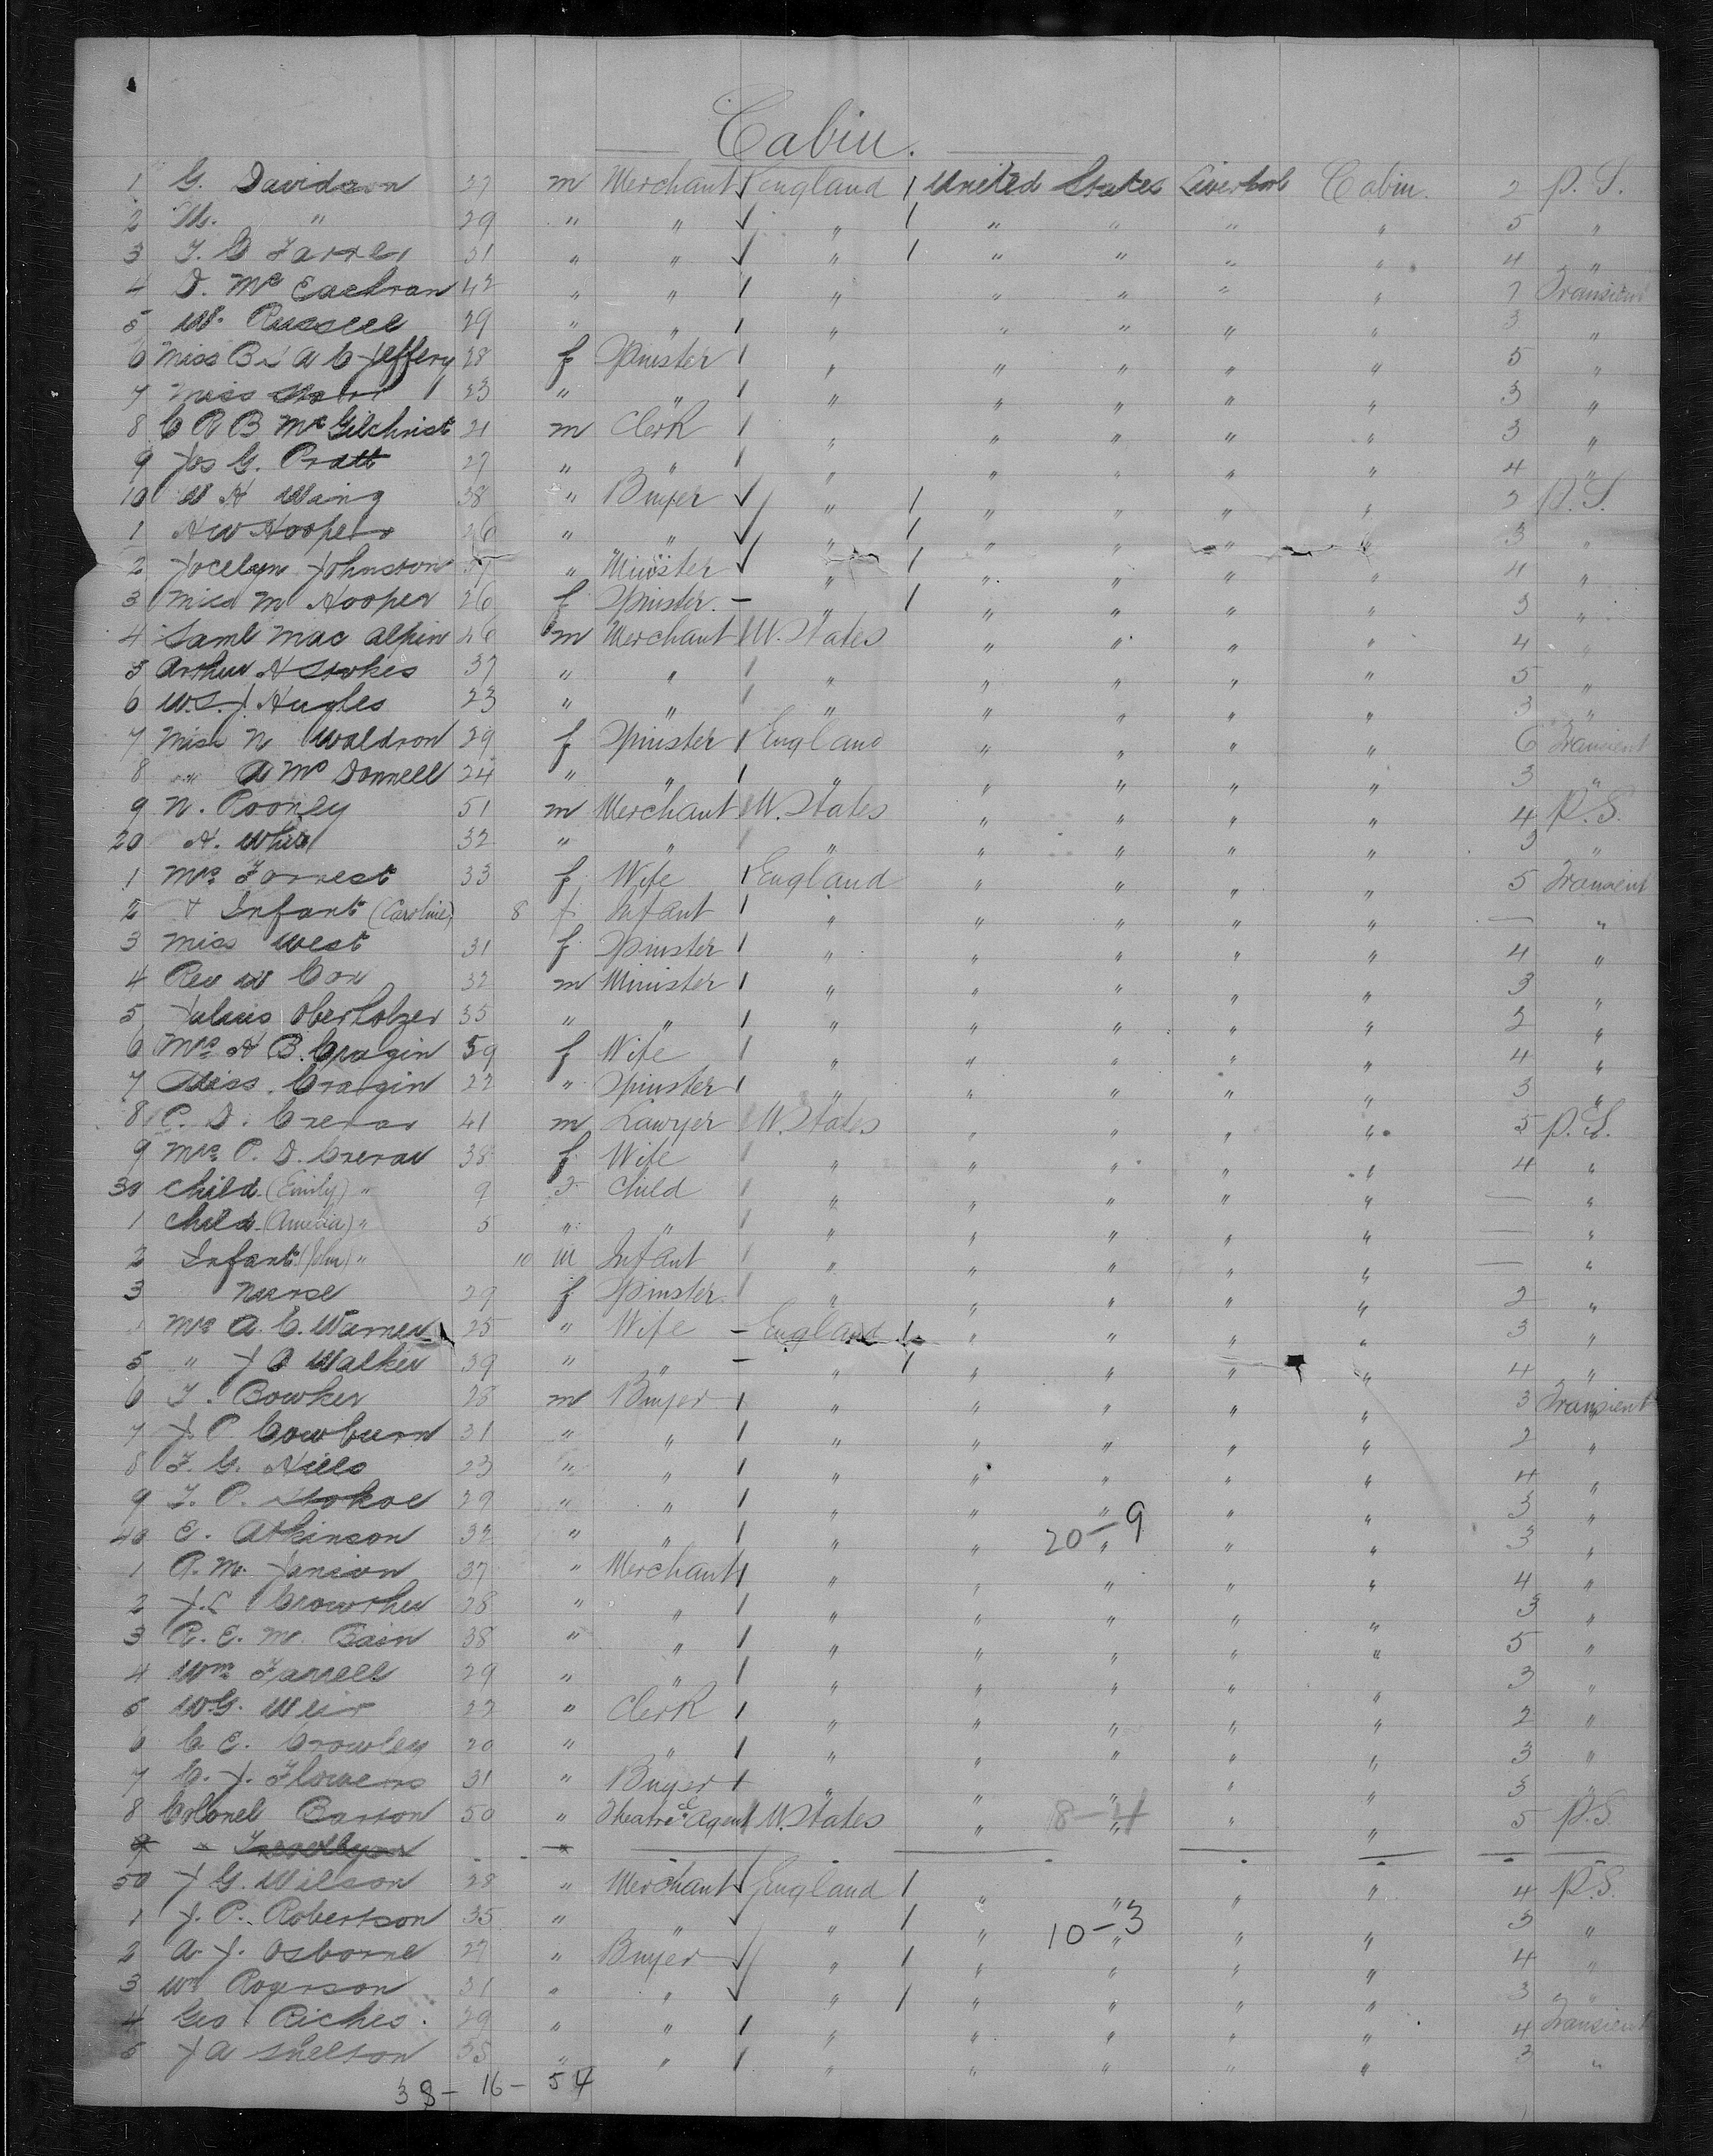 Cabin.
1 G. Davidson 27 m Merchant England United States Liverpool Cabin. 2 P. S.
2 M. " 29 " " " " " " " 5 "
3 T. C Farrer 31 " " " " " " " 4 "
4 D. Mc Eachran 42 " " " " " " " 7 Transient
5 W. Russell 29 " " " " " " " 3 "
6 Miss B & A C Jeffery 28 f Spinster " " " " " 5 "
7 Miss 23 " " " " " " " 3 "
8 C R B Mc Gilchrist 21 m Clerk " " " " " 3 "
9 Jos G. Pratt 27 " " " " " " " 4 "
10 W H Waing 38 " Buyer " " " " " 2 P. S.
1 H W Hooper 26 " " " " " " " 3 "
2 Jocelyn Johnston " Minister " " " " " 4 "
3 Miss M Hooper 26 f Spinster " " " " " 3 "
4 Saml Mac Alpin 46 m Merchant U. States " " " " 4 "
5 Arthur H Stokes 37 " " " " " " " 5 "
6 W. S. J. Hughes 23 " " " " " " " 3 "
7 Miss N Waldron 29 f Spinster England " " " " 6 Transient
8 " A Mc Donnell 24 " " " " " " " 3 "
9 N. Rooney 51 m Merchant U. States " " " " 4 P. S.
20 H. White 32 " " " " " " " 3 "
1 Mrs Forrest 33 f Wife England " " " " 5 Transient
2 + Infant (Caroline) 8 f Infant " " " " " — "
3 Miss West 31 f Spinster " " " " " 4 "
4 Rev W Cox 32 m Minister " " " " " 3 "
5 Julius Oberholzer 35 " " " " " " " 2 "
6 Mrs H B. Cragin 59 f Wife " " " " " 4 "
7 Miss. Cragin 22 " Spinster " " " " " 3 "
8 P. D. Crerar 41 m Lawyer U. States " " " " 5 P. S.
9 Mrs P. D. Crerar 38 f Wife " " " " " 4 "
30 Child (Emily) " 9 f Child " " " " " — "
1 Child (Amelia) " 5 " " " " " " " — "
2 Infant (John) " 10 m Infant " " " " " — "
3 Nurse 29 f Spinster " " " " " 2 "
Mrs A. C. Warner 25 " Wife England " " " " 3 "
5 " J B Walker 39 " " " " " " " 4 "
6 T. Bowker 28 m Buyer " " " " " 3 Transient
7 J. P. Cowburn 31 " " " " " " " 2 "
8 F. G. Niels 23 " " " " " " " 4 "
9 T. P. Stokoe 29 " " " " " " " 3 "
40 E. Atkinson 32 " " " " 20-9 " " " 3 "
1 R. M. Janion 37 " Merchant " " " " " 4 "
2 J. L Crowther 28 " " " " " " " 3 "
3 R. E. M. Bain 38 " " " " " " " 5 "
4 Wm Farrell 29 " " " " " " " 3 "
5 W. G. Weir 22 " Clerk " " " " " 2 "
6 C. E. Crowley 20 " " " " " " " 3 "
7 C. J. Flowers 31 " Buyer " " " " " 3 "
8 Colonel Barron 50 " Theatrel Agent U. States " 18-4 " " " 5 P. S.
9 "
50 J G. Wilson 28 " Merchant England " " " " 4 P. S.
1 J. P. Robertson 35 " " " " 10-3 " " " 3 "
2 A. J. Osborne 27 " Buyer " " " " " 4 "
3 Wm Rogerson 31 " " " " " " " 3 "
4 Geo Riches. 29 " " " " " " " 4 Transient
5 J A Shelton 35 " " " " " " " 3 "
38 - 16 - 54